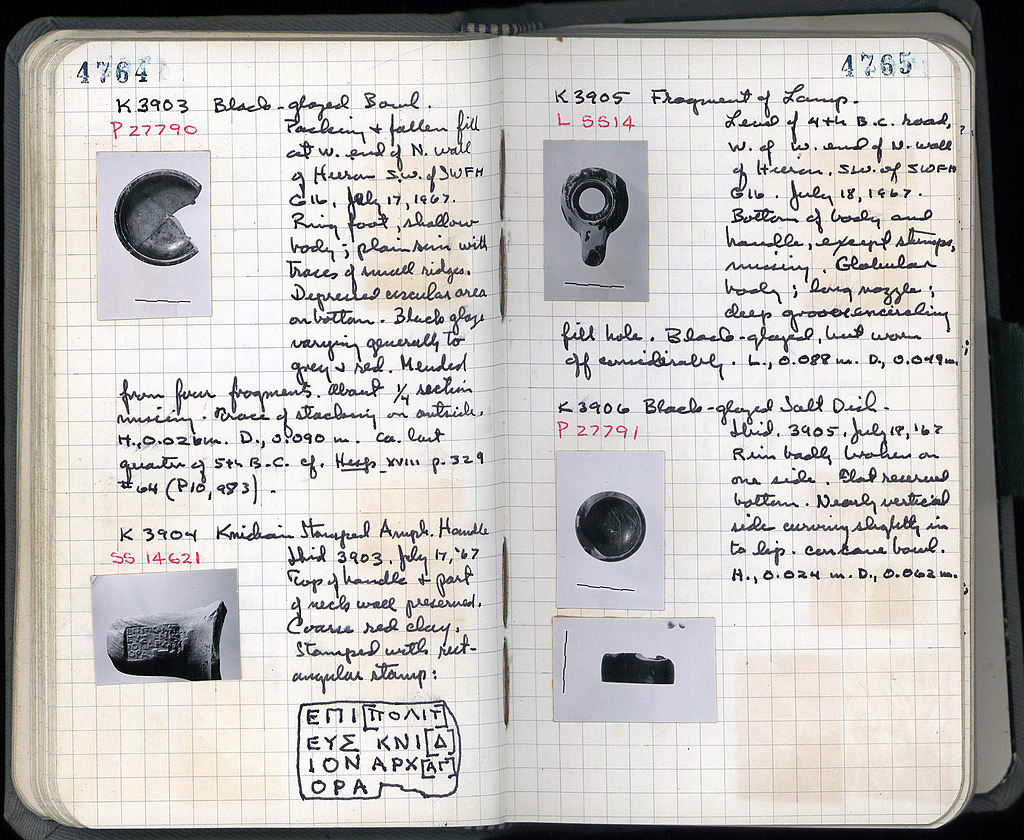 4764
K 3903 Black-glazed Bowl.
P 27790
Packing + fallen fill
at W. end of N. wall
of Heroon S.W. of SWFH
G16, July 17, 1967.
Ring foot, shallow
body; plain rim with
traces of small ridges.
Depressed circular area
on bottom. Black glaze
varying generally to
grey + red. Mended
from four fragments. About 1/4 section
missing. Trace of stacking on outside.
H., 0.026 m. D., 0.090 m. ca. last
quarter of 5th B.C. cf. Hesp. XVIII p. 329
#64 (P10,983).
K 3904 Knidian Stamped Amph. Handle
SS 14621
Ibid 3903. July 17, '67
Top of handle + part
of neck wall preserved.
Coarse red clay.
Stamped with rect-
angular stamp:
ΕΠΙ [ΠΟΛΙΤ]
ΕΥΣ ΚΝΙ[Δ]
ΙΟΝ ΑΡΧ[ΑΓ]
ΟΡΑ
4765
K 3905 Fragment of Lamp.
L 5514
Level of 4th B.C. road,
W. of W. end of N. wall
of Heroon. S.W. of SWFH
G16. July 18, 1967.
Bottom of body and
handle, except stumps,
missing. Globular
body; long nozzle;
deep groove encircling
fill hole. Black-glazed, but worn
off considerably. L., 0.088 m. D., 0.049 m.
K 3906 Black-glazed Salt Dish.
P 27791
Ibid. 3905, July 18, '67
Rim badly broken on
one side. Flat reserved
bottom. Nearly vertical
side curving slightly in
to lip. Concave bowl.
H., 0.024 m. D., 0.062 m.